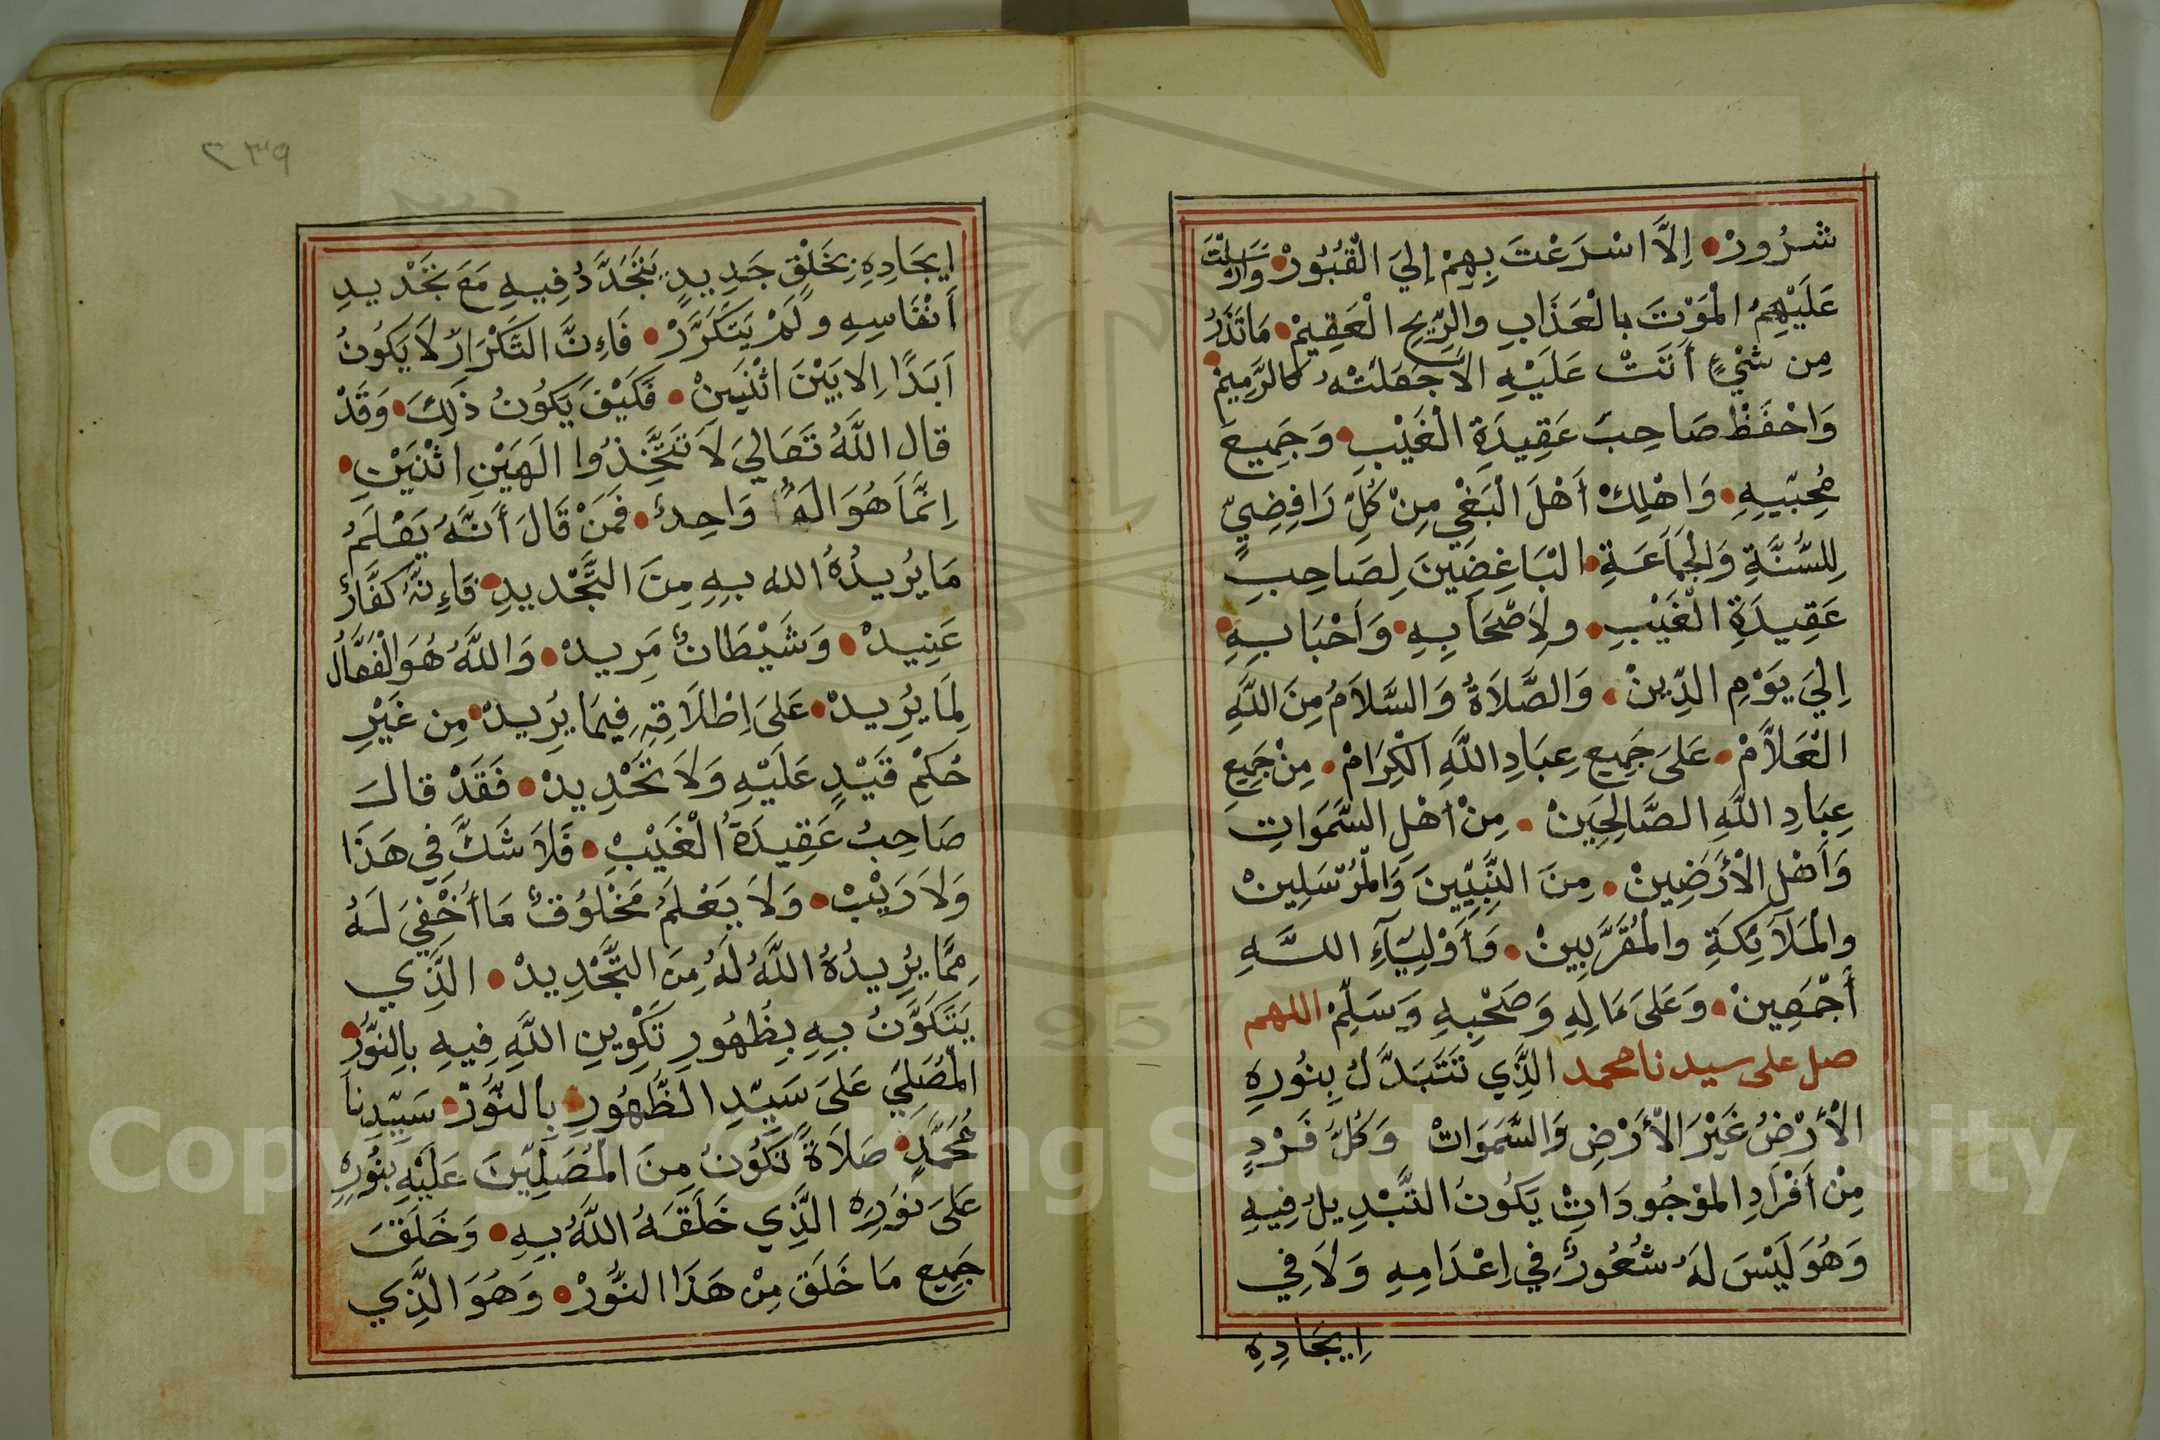 شَرُورْ • اِلَّا اسْرَعْتَ بِهِمْ إِليَ الْقُبُوُرْ • وَارْسَلْتَ
عَلَيْهِمُ الْمَوْتَ بالْعَذَابِ والرِّيحِ الْعَقِيمْ • مَا تَذَرُ
مِن شَيْءٍ أَتَتْ عَلَيْهِ الاَّ جَعَلَتْهُ كالرَّمِيمْ •
وَاحْفَظْ صَاحِبَ عَقِيدَةِ الْغَيْبِ • وَجَمِيعَ
مُحِبّيِهِ • وَاهْلِكْ أَهْلَ الْبَغْيِ مِنْ كُلِّ رَافِضِيٍّ
لِلسُّنَّةِ وَالْجَمَاعَةِ • الْبَاغِضِينَ لِصَاحِبِ
عَقِيدَةِ الْغَيْبِ • ولِاَصْحَابِهِ • وَاَحْبَابِهِ •
اِليَ يَوْمِ الدِّينْ • وَالصَّلَاةُ وَالسَّلَامُ مِنَ اللَّهِ
الْعَلاَّمْ • عَلىَ جَمِيعِ عِبَادِ اللَّهِ الْكِرَامْ • مِنْ جَمِيعِ
عِبَادِ اللَّهِ الصَّالِحِينْ • مِنْ أهْلِ السَّمَوَاتِ
وَأَهْلِ الْأَرَضِينْ • مِنَ النَّبِيِّينَ وَالْمُرْسَلِينْ
والْمَلَآئِكَةِ والْمُقَرَّبِينْ • وَأَوْلِيَآءِ اللَّهِ
أَجْمَعِينْ • وَعَلىَ مَالِهِ وَصَحْبِهِ وَسَلِّمْ اللهم
صل على سيدنا محمد الَّذِي تَتَبَدَّلُ بِنُورِهِ
الْأَرْضُ غَيْرَ الْأَرْضِ وَالسَّمَوَاتْ وَكُلُّ فَرْدٍ
مِنْ أَفْرَادِ المَوْجُودَاتِ يَكُونُ التَّبْدِيلُ فِيهِ
وَهُوَ لَيْسَ لَهُ شُعُورٌ فِي اِعْدَامِهِ وَلَا فِي
اِيجَادِهِ
٢٣٩
اِيجَادِهِ بِخَلْقٍ جَدِيدٍ يَتَجَدَّدُ فِيهِ مَعَ تَجْدِيدِ
أَنْفَاسِهِ ولَمْ يَتَكَرَّرْ • فَاءِنَّ التَّكْرَارَ لَا يَكُونُ
اَبَدًا اِلا بَيْنَ اثْنَيِنْ • فَكَيْفَ يَكُونُ ذَلِكَ • وَقَدْ
قال اللَّهُ تَعَاليَ لَا تَتَّخِذُوا الَهَيْنِ اثْنَيْنِ •
اِنَّمَا هُوَ الَهٌ وَاحِدٌ • فَمَنْ قَالَ أَنَّهُ يَعْلَمُ
مَا يُرِيدُهُ الله بِهِ مِنَ التَّجْدِيدِ • فَاءِنَّهُ كَفَّارٌ
عَنِيدْ • وَشَيْطَانٌ مَرِيدْ • وَاللَّهُ هُوَ الْفَعَّالُ
لِمَا يُرِيدْ • عَلىَ اِطْلَاقِهِ فِيمَا يُرِيدْ • مِن غَيْرِ
حُكْمِ قَيْدٍ عَلَيْهِ وَلَا تَحْدِيدْ • فَقَدْ قالَ
صَاحِبُ عَقِيدَةُ الْغَيْبْ • فَلَا شَكَّ فِي هَذَا
وَلَا رَيْبْ • وَلَا يَعْلَمُ مَخْلُوقٌ مَا أُخْفِيَ لَهُ
مِمَّا يُرِيدُهُ اللَّهُ لَهُ مِنَ التَّجْدِيدْ • الَّذِي
يَتَكَوَّنُ بِهِ بِظُهُورِ تَكْوِينِ اللَّهِ فِيهِ بِالنُّورْ •
الْمُصَلِي عَلىَ سَيِّدِ الظُّهُورِ • بِالنُّورْ • سَيِّدِنَا
مُحَمَّدٍ • صَلَاةً نَكُونُ مِنَ الْمُصَلِّينَ عَلَيْهِ بِنُورِهِ
عَلىَ نُورِهِ الَّذِي خَلَقَهُ اللَّهُ بِهِ • وَخَلَقَ
جَمِيعِ مَا خَلَقَ مِنْ هَذَا النُّورْ • وَهُوَ الَّذِي
Copyright © King Saud University
1957